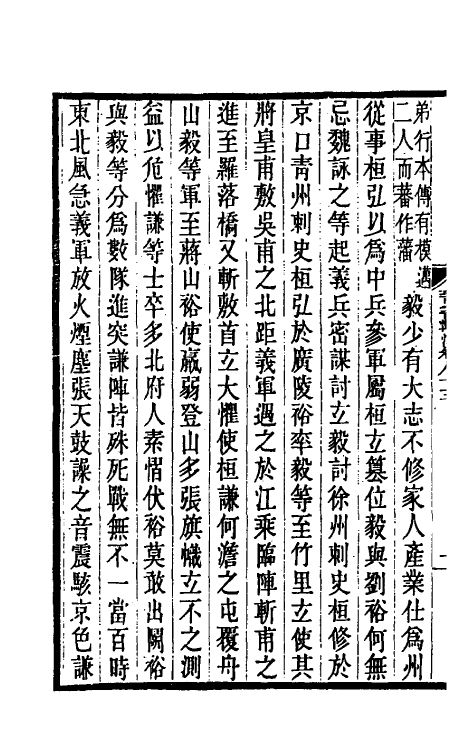 弟行本傳有模邁
二人而蕃作藩
毅少有大志不修家人產業仕爲州
從事桓弘以爲中兵參軍屬桓立篡位毅與劉裕何無
忌魏詠之等起義兵密謀討立毅討徐州刺史桓修於
京口青州刺史桓弘於廣陵裕率毅等至竹里立使其
將皇甫敷吳甫之北距義軍遇之於江乘臨陣斬甫之
進至羅落橋又斬敷首立大懼使桓謙何澹之屯覆舟
山毅等軍至蔣山裕使羸弱登山多張旗幟立不之測
益以危懼謙等士卒多北府人素慴伏裕莫敢出鬭裕
與毅等分爲數隊進突謙陣皆殊死戰無不一當百時
東北風急義軍放火煙塵張天鼓譟之音震駭京邑謙